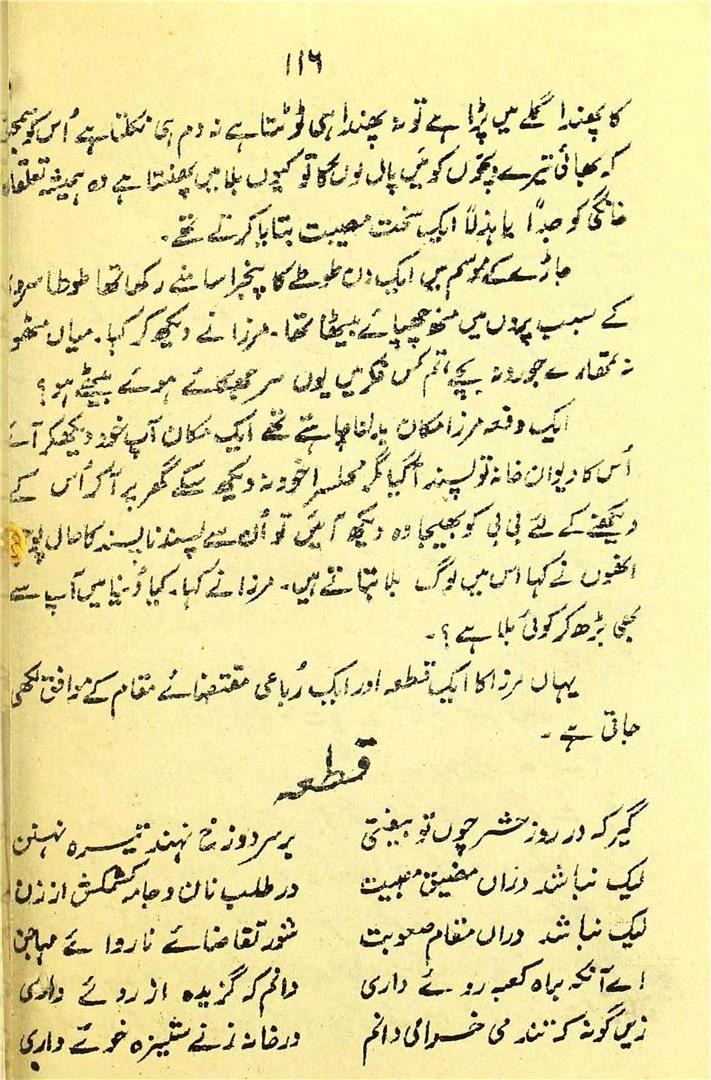 ۱۱۶
کا پھندا گلے میں پڑا ہے تو نہ پھندا ہی ٹوٹتا ہے نہ دم ہی نکلتا ہے اُس کو سمجھاؤ
کہ بھائی تیرے بچوں کو میں پال لوں گا تو کیوں بلا میں پھنستا ہے وہ ہمیشہ تعلقات
خانگی کو جدّاً یا ہذلاً ایک سخت مصیبت بتایا کرتے تھے۔
جاڑے کے موسم میں ایک دن طوطے کا پنجرا سامنے رکھا تھا طوطا سردی
کے سبب پروں میں منھ چھپائے بیٹھا تھا۔ مرزا نے دیکھ کر کہا۔ میاں مٹھو
نہ تمھارے جورو نہ بچے، تم کس فکر میں یوں سر جھکائے ہوئے بیٹھے ہو؟
ایک دفعہ مرزا مکان بدلنا چاہتے تھے ایک مکان آپ خود دیکھکر آئے
اُس کا دیوان خانہ تو پسند آگیا مگر محلسرا خود نہ دیکھ سکے گھر پر آکر اُس کے
دیکھنے کے لئے بی بی کو بھیجا وہ دیکھ آئیں تو اُن سے پسند ناپسند کا حال پوچھا
انھوں نے کہا اس میں لوگ بلا بتاتے ہیں۔ مرزا نے کہا۔ کیا دُنیا میں آپ سے
بھی بڑھ کر کوئی بلا ہے؟۔
یہاں مرزا کا ایک قطعہ اور ایک رُباعی مقتضائے مقام کے موافق لکھی
جاتی ہے۔
قطعہ
گیر کہ در روز حشر چوں تو بیفتی برسر دوزخ نہند تیرہ نہنبن
لیک نباشد دراں مضیق مصیبت در طلب نان و جامہ کشمکش از زن
لیک نباشد دراں مقام صعوبت شور تقاضائے ناروائے مہاجن
اے آنکہ براہ کعبہ روئے داری دانم کہ گزیدہ آرزوئے داری
زیں گونہ کہ تند می خرامی دانم در خانہ زنے ستیزہ خوئے داری